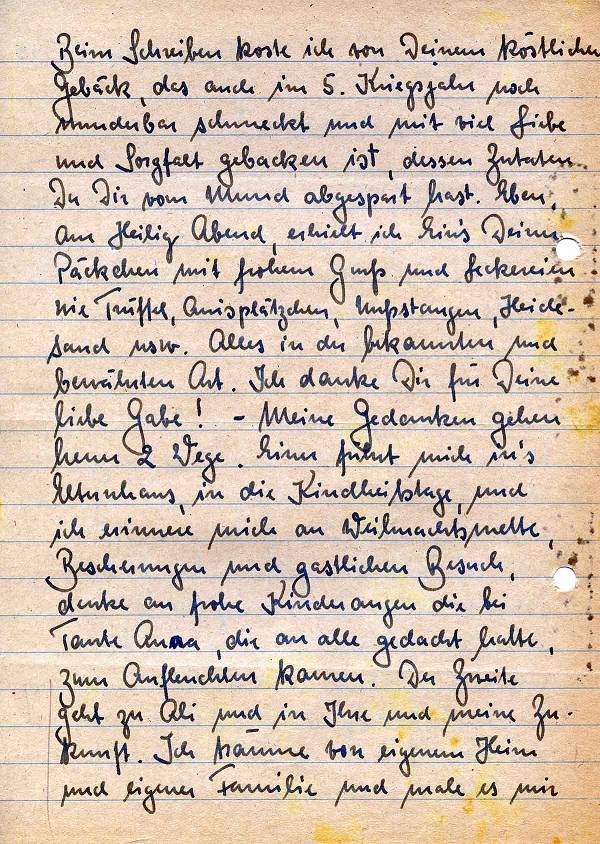 Beim Schreiben koste ich von Deinem köstlichen
Gebäck, das auch im 5. Kriegsjahr noch
wunderbar schmeckt und mit viel Liebe
und Sorgfalt gebacken ist, dessen Zutaten
Du Dir vom Mund abgespart hast. Eben,
am Heilig Abend, erhielt ich eins Deiner
Päckchen mit frohem Gruß und Leckereien
wie Trüffel, Anisplätzchen, Nußstangen, Heide-
sand usw. Alles in der bekannten und
bewährten Art. Ich danke Dir für Deine
liebe Gabe! - Meine Gedanken gehen
heut 2 Wege. Einer führt mich in's
Elternhaus, in die Kindheitstage, und
ich erinnere mich an Weihnachtsmette,
Bescherungen und gastlichen Besuch,
denke an frohe Kinderaugen die bei
Tante Anna, die an alle gedacht hatte,
zum Aufleuchten kamen. Der Zweite
geht zu Ali und in Ihre und meine Zu-
kunft. Ich träume von eigenem Heim
und eigener Familie und male es mir